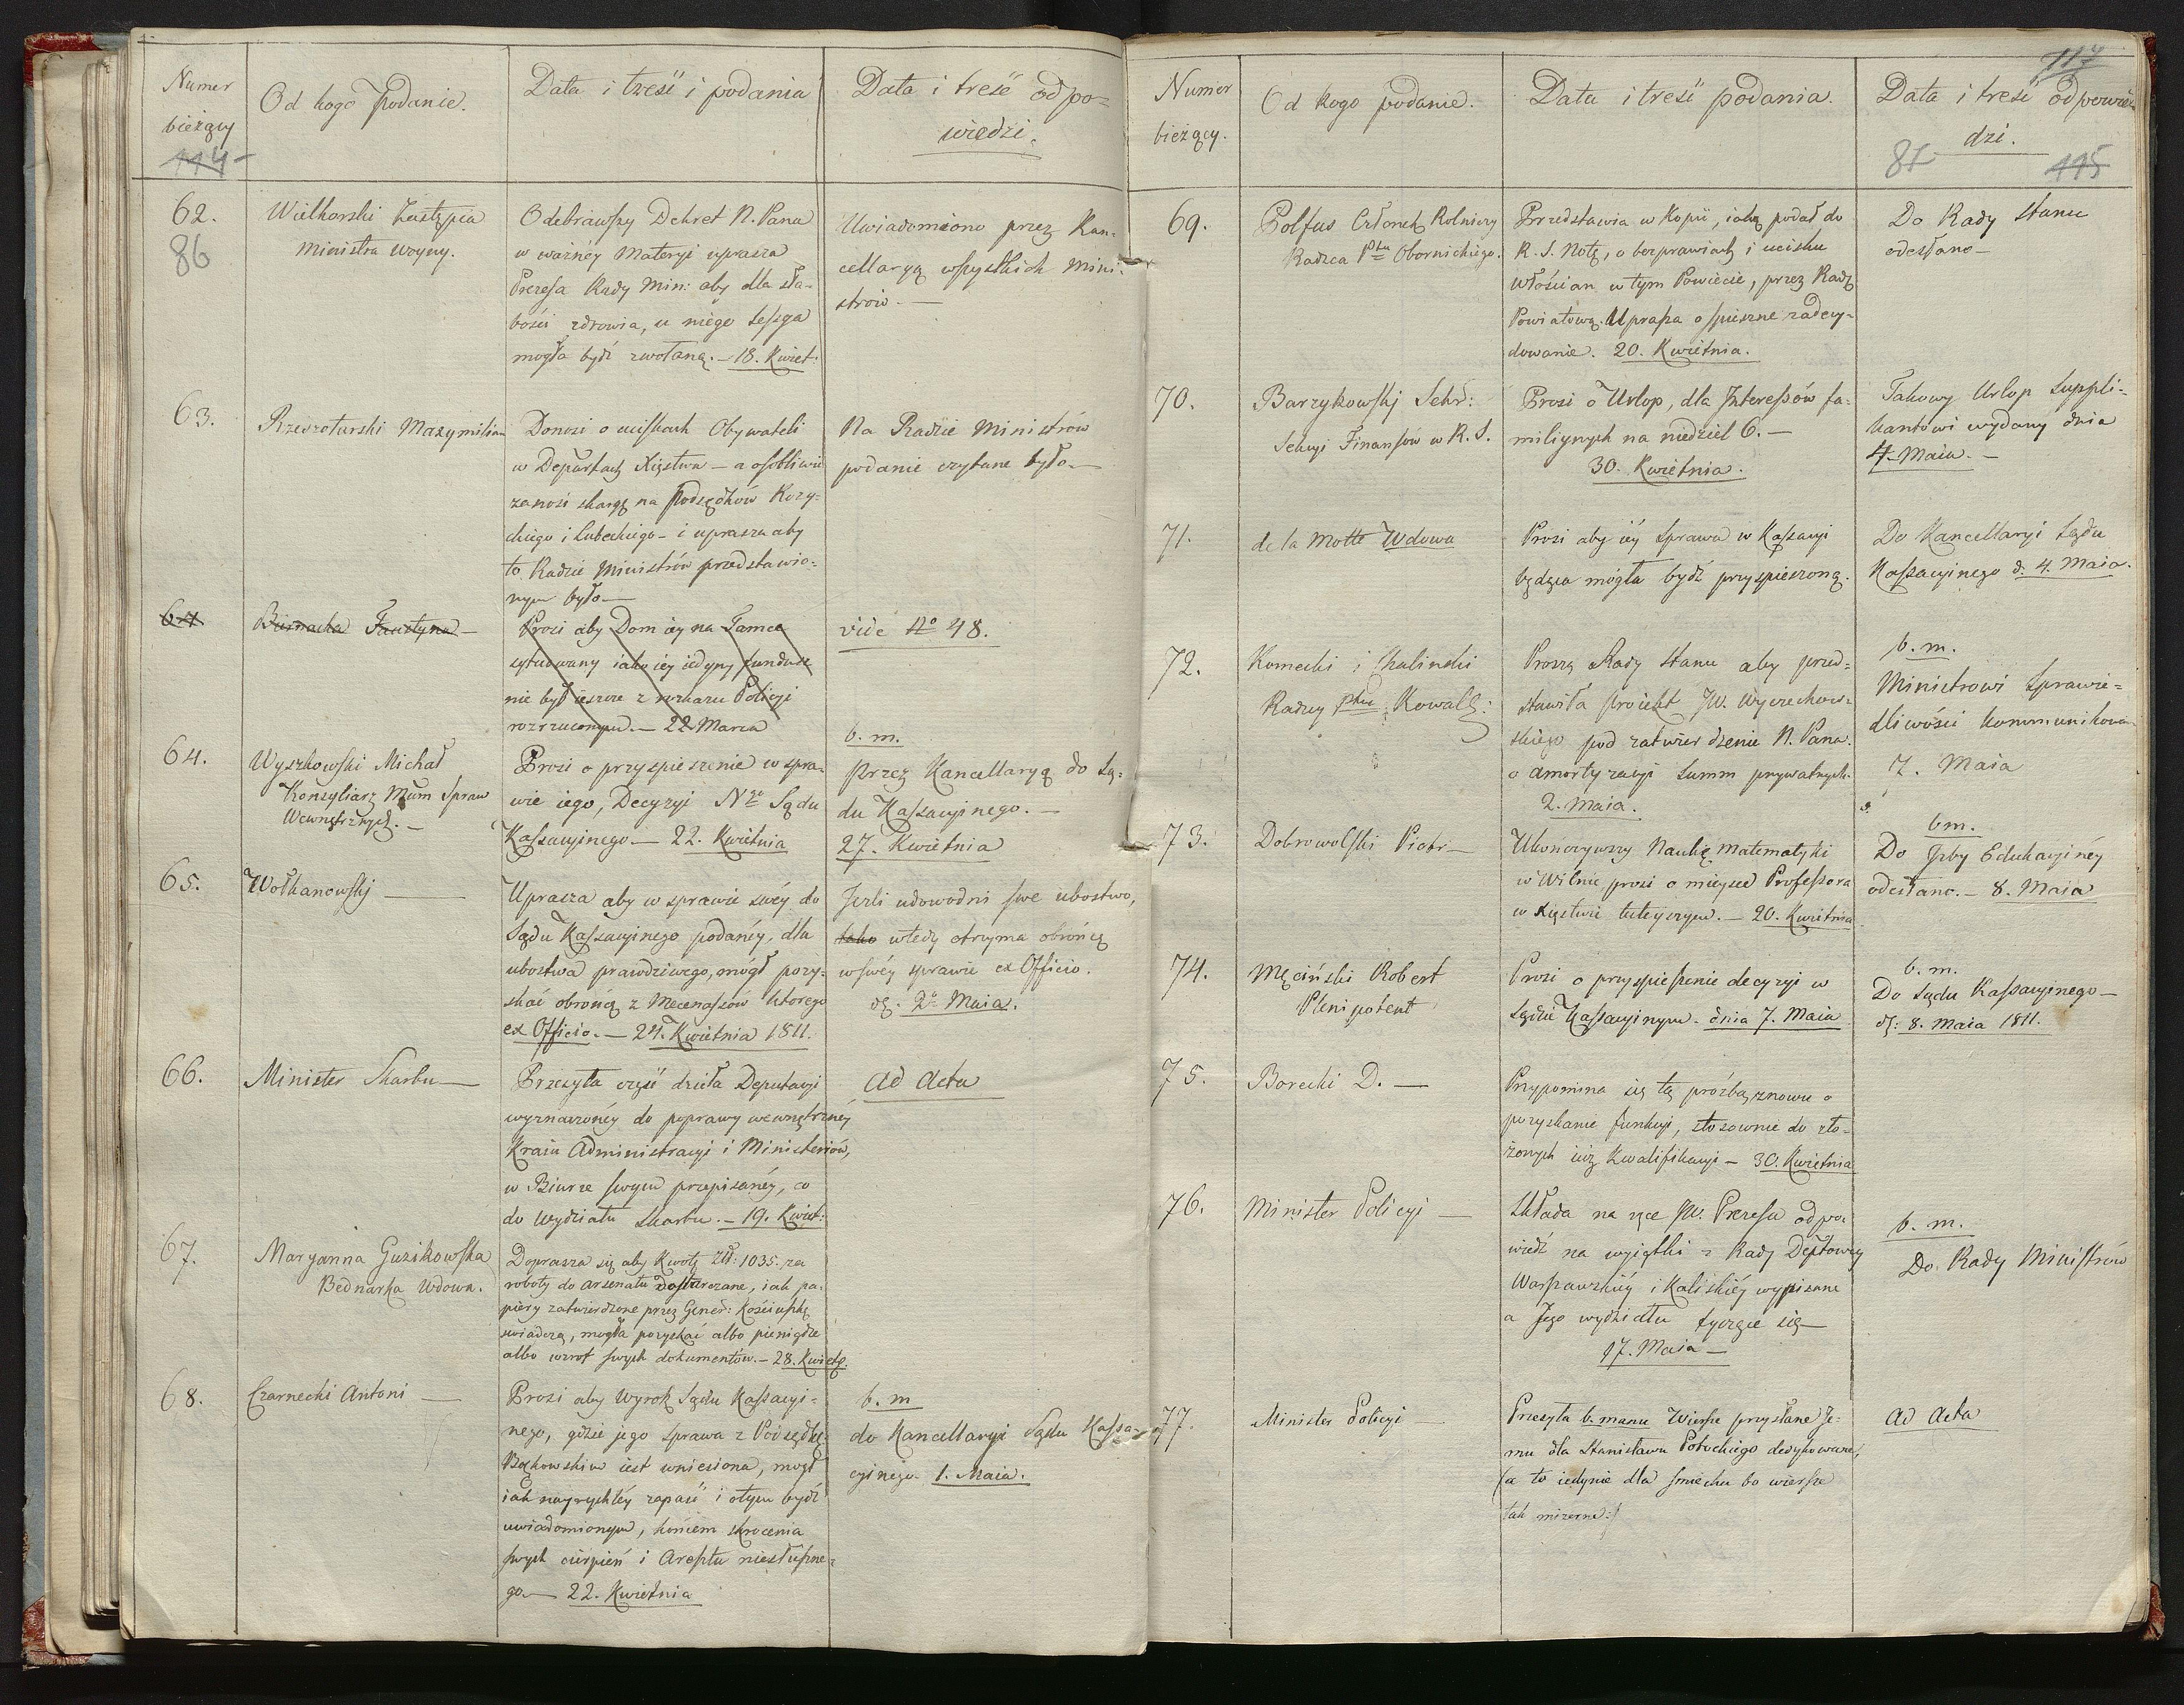 Numer
bieżący
114
Od kogo Podanie.
Data i treść i podania
Data i treść odpo=
wiedzi.
62.
86
Wielhorski Zastępca
Ministra Woyny.
Odebrawszy Dekret N. Pana
w ważnéy Materyi uprasza
Prezesa Rady Min: aby dla sła-
bości zdrowia, u niego Sessya
mogła bydź zwołaną. – 18. Kwiet:
Uwiadomiono przez Kan-
cellaryą wszystkich Mini-
strów. –
63.
Rzeszotarski Maxymilian
Donosi o uciskach Obywateli
w Departach Xięstwa – a osobliwie
zanosi skargę na Podsędków Kozy-
ckiego i Lubeckiego – i uprasza aby
to Radzie Ministrów przedstawio-
nym było –
Na Radzie Ministrów
podanie czytane było –
64
Biernacka Faustyna –
Prosi aby Dom iéy na Tamce
sytuowany iako iéy iedyny fundusz
nie był ieszcze z rozkazu Policyi
rozrzuconym. – 22 Marca
vide No 48.
64.
Wyszkowski Michał
Konsyliarz Mum Spraw
Wewnętrznych. –
Prosi o przyspieszenie w spra-
wie iego, Decyzyi Sądu
Kassacyinego – 22. Kwietnia
b. m.
Przez Kancellaryą do Są-
du Kassacyinego. –
27. Kwietnia
65.
Wołkanowski –
Uprasza aby w sprawie swéy do
Sądu Kassacyinego podanéy, dla
ubostwa prawdziwego, mógł pozy-
skać obrońcę z Mecenassów którego
ex Officio. – 24. Kwietnia 1811.
Jeżli udowodni swe ubostwo,
tako wtedy otrzyma obrońcę
w swéy sprawie ex Officio.
d. 2 Maia.
66.
Minister Skarbu –
Przesyła część dzieła Deputacyi
wyznaczonéy do poprawy wewnętrznéy
Kraiu Administracyi i Ministeriów,
w Biurze swym przepisanéy, co
do Wydziału Skarbu. – 19. Kwiet:
Ad Acta
67.
Maryanna Guzikowska
Bednarka Wdowa.
Doprasza się aby Kwotę Zł: 1035. za
roboty do arsenału dostarczane, iak pa-
piery zatwierdzone przez Gener: Kościuszkę
świadczą, mogła pozyskać albo pieniądze
albo wzrot swych dokumentów. – 28. Kwiet:
68.
Czarnecki Antoni –
Prosi aby Wyrok Sądu Kassacyi-
nego, gdzie jego sprawa z Podsędkę
Bąkowskim iest wniesiona, mógł
iak nayrychléy zapaść i otym bydź
uwiadomionym, końcem skrocenia
swych cierpień i Aresztu niesłuszne-
go. – 22. Kwietnia
b. m
do Kancellaryi Sądu Kassa-
cyinego. 1. Maia.
Numer
bieżący.
Od kogo podanie.
Data i treść podania.
117
Data i treść odpowie-
dzi.
87
115
69.
Polfus Członek Rolniczy
Radzca Ptu Obornickiego.
Przedstawia w Kopii, iaką podał do
R. S. Notę, o bezprawiach i ucisku
Włościan w tym Powiecie, przez Radę
Powiatową. Uprasza o spieszne zadecy-
dowanie. 20. Kwietnia.
Do Rady Stanu
odesłano –
70.
Barzykowski Sekr:
Sekcyi Finansów w R. S.
Prosi o Urlop, dla Interessów fa-
miliynych na niedziel 6. –
30. Kwietnia.
Takowy Urlop Suppli-
kantowi wydany dnia
4. Maia. –
71.
de la Motte Wdowa
Prosi aby iéy Sprawa w Kassacyi
będąca mógła bydź przyspieszoną.
Do Kancellaryi Sądu
Kassacyinego d. 4. Maia.
72.
Komecki i Kalinski
Radzcy Ptu Kowalg:
Proszą Rady Stanu aby przed-
stawiła proiekt JW. Wyczechow-
skiego pod zatwierdzenie N. Pana.
o amortyzacyi Summ prywatnych.
2. Maia.
b. m.
Ministrowi Sprawie-
dliwości kommunikowa-
7. Maia
73.
Dobrowolski Piotr –
Ukończywszy Naukę Matematyki
w Wilnie, prosi o mieysce Professora
w Xięstwie tuteyszym. – 20. Kwietnia
bm.
Do Izby Edukacyinéy
odesłano. – 8. Maia
74.
Męciński Robert
Plenipotent
Prosi o przyspieszenie decyzyi w
Sądzie Kassacyinym. dnia 7. Maia
b. m.
Do Sądu Kassacyinego –
d: 8. Maia 1811.
75.
Borecki D. –
Przypomina się tą prózbą znowu o
pozyskanie funkcyi, stosownie do zło-
żonych iuż kwalifikacyi – 30. Kwietnia
76.
Minister Policyi –
Składa na ręce JW. Prezesa odpo-
wiedź na wyiątki z Rady Deptowey
Warszawskiéy i Kaliskiéy wypisane
a Jego wydziału tyczące się –
17. Maia –
b. m.
Do Rady Ministrów
77.
Minister Policyi –
Przesyła b. manu Wiersze przysłane Je-
mu dla Stanisława Potockiego dedykowane,
(a to iedynie dla smiechu bo wiersze
tak mizerne:/
Ad Acta